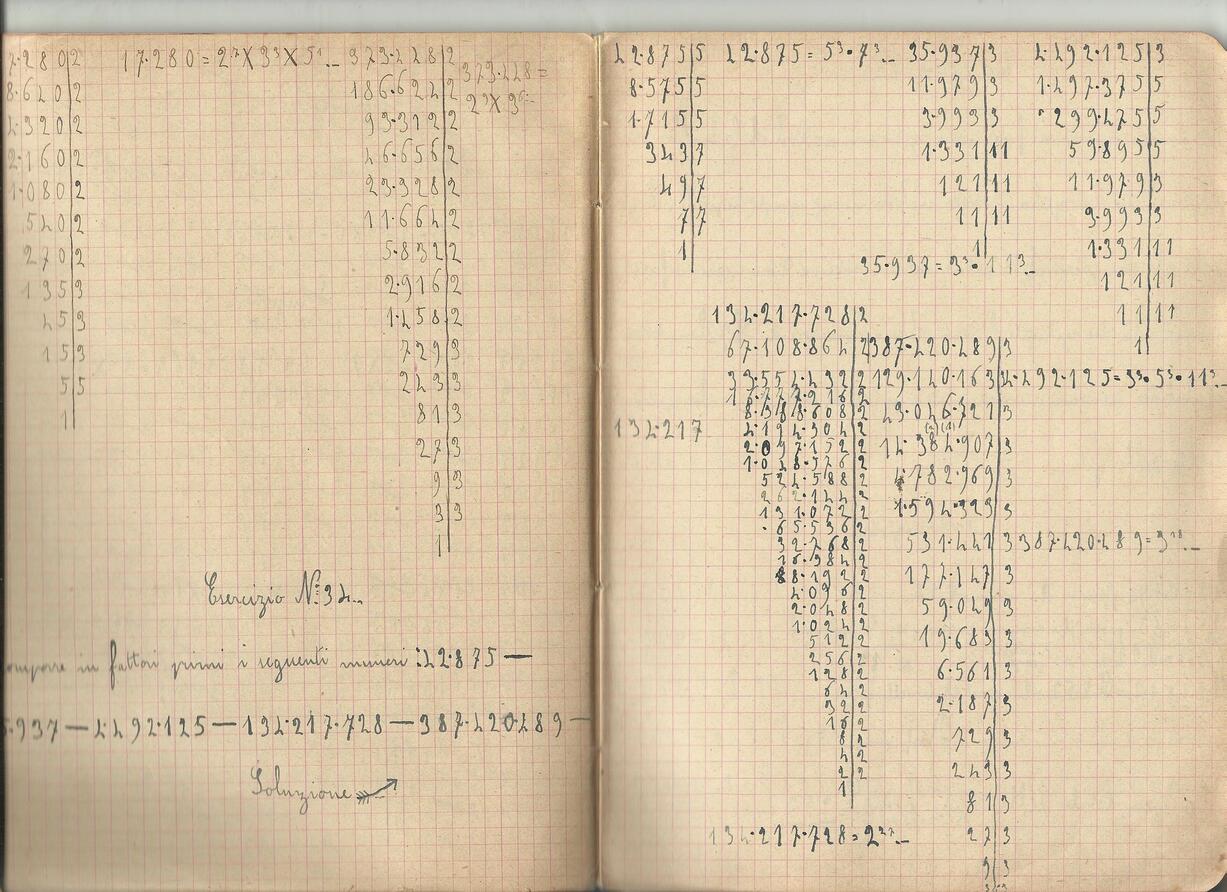 7·280|2
8·640|2
4·320|2
2·160|2
1·080|2
540|2
270|2
135|3
45|3
15|3
5|5
1|
17·280 = 2⁷ X 3³ X 5¹
373·248|2
186·624|2
93·312|2
46·656|2
23·328|2
11·664|2
5·832|2
2·916|2
1·458|2
729|3
243|3
81|3
27|3
9|3
3|3
1|
373·248 =
2⁹ X 3⁶
Esercizio N.° 34
omporre in fattori primi i seguenti numeri: 42·875 —
5·937 — 4·492·125 — 134·217·728 — 387·420·489 —
Soluzione
42·875|5
8·575|5
1·715|5
343|7
49|7
7|7
1|
42·875 = 5³·7³
35·937|3
11·979|3
3·993|3
1·331|11
121|11
11|11
1|
35·937 = 3³·11³
4·492·125|3
1·497·375|5
299·475|5
59·895|5
11·979|3
3·993|3
1·331|11
121|11
11|11
1|
4·492·125 = 3³·5³·11³
134·217·728|2
67·108·864|2
33·554·432|2
16·777·216|2
8·388·608|2
4·194·304|2
2·097·152|2
1·048·576|2
524·288|2
262·144|2
131·072|2
65·536|2
32·768|2
16·384|2
8·192|2
4·096|2
2·048|2
1·024|2
512|2
256|2
128|2
64|2
32|2
16|2
8|2
4|2
2|2
1|
134·217
134·217·728 = 2²⁷
387·420·489|3
129·140·163|3
43·046·721|3
14·384·907|3
4·782·969|3
1·594·323|3
531·441|3
177·147|3
59·049|3
19·683|3
6·561|3
2·187|3
729|3
243|3
81|3
27|3
9|3
387·420·489 = 3¹⁸